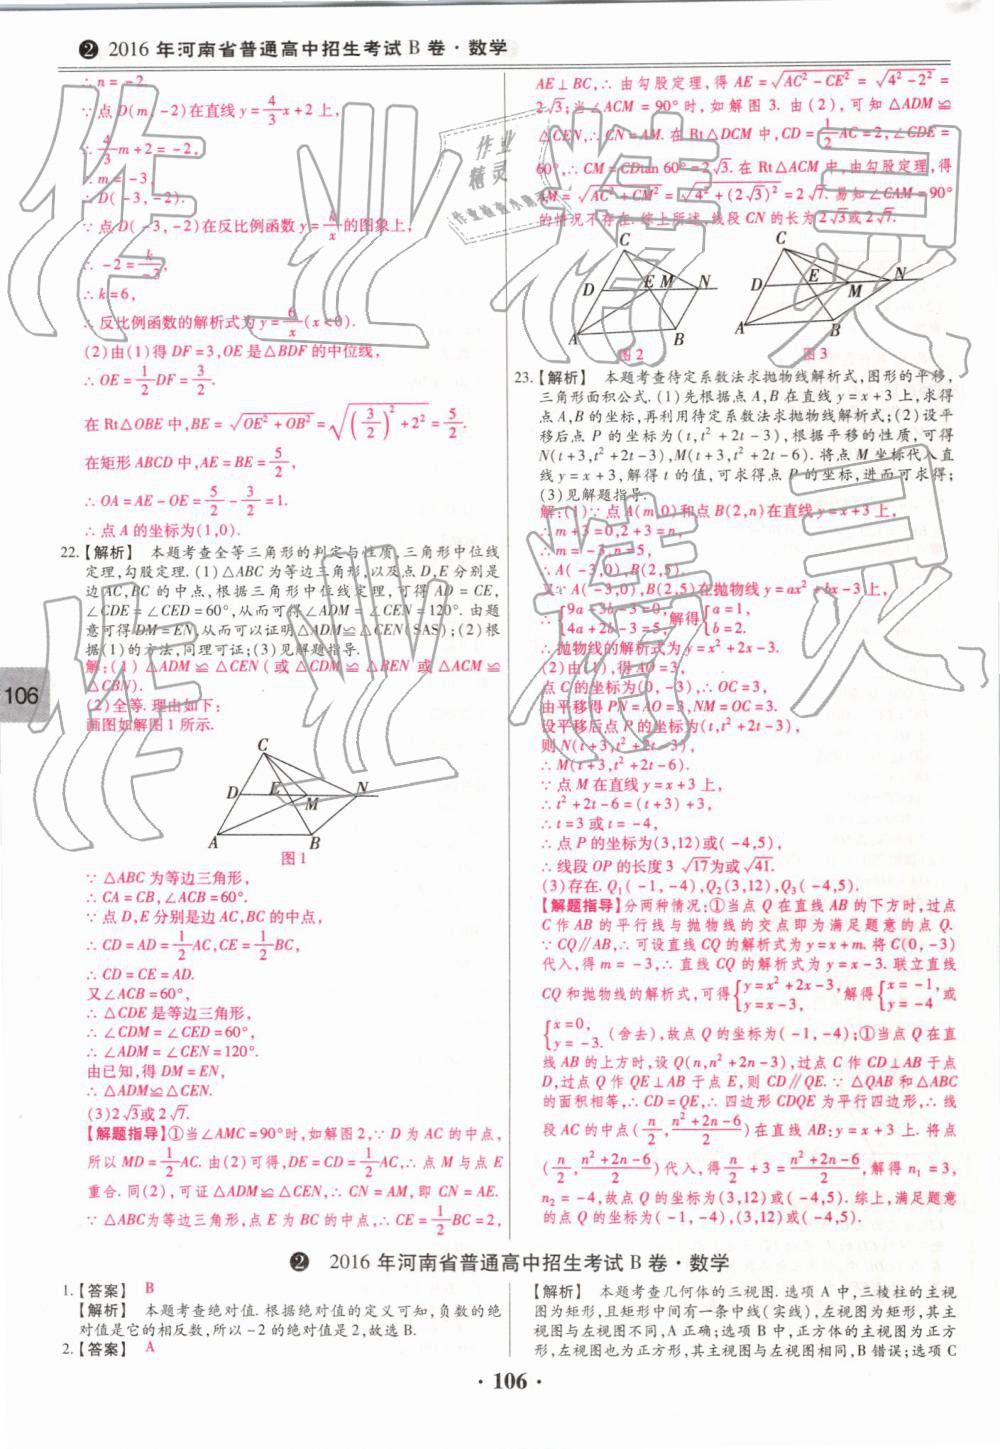 ❷ 2016年河南省普通高中招生考试B卷·数学
∴n=-2.
∵点D(m,-2)在直线y=4/3x+2上,
∴4/3m+2=-2,
∴m=-3,
∴D(-3,-2).
∵点D(-3,-2)在反比例函数y=k/x的图象上,
∴-2=k/-3,
∴k=6,
∴反比例函数的解析式为y=6/x(x<0).
(2)由(1)得DF=3,OE是△BDF的中位线,
∴OE=1/2DF=3/2.
在Rt△OBE中,BE=√(OE²+OB²)=√((3/2)²+2²)=5/2.
在矩形ABCD中,AE=BE=5/2,
∴OA=AE-OE=5/2-3/2=1.
∴点A的坐标为(1,0).
22.【解析】 本题考查全等三角形的判定与性质,三角形中位线
定理,勾股定理.(1)△ABC为等边三角形,以及点D,E分别是
边AC,BC的中点,根据三角形中位线定理,可得AD=CE,
∠CDE=∠CED=60°,从而可得∠ADM=∠CEN=120°.由题
意可得DM=EN,从而可以证明△ADM≌△CEN(SAS);(2)根
据(1)的方法,同理可证;(3)见解题指导.
解:(1)△ADM≌△CEN(或△CDM≌△BEN或△ACM≌
△CBN).
(2)全等.理由如下:
画图如解图1所示.
C
D E M N
A B
图1
∵△ABC为等边三角形,
∴CA=CB,∠ACB=60°.
∵点D,E分别是边AC,BC的中点,
∴CD=AD=1/2AC,CE=1/2BC,
∴CD=CE=AD.
又∠ACB=60°,
∴△CDE是等边三角形,
∴∠CDM=∠CED=60°,
∴∠ADM=∠CEN=120°.
由已知,得DM=EN,
∴△ADM≌△CEN.
(3)2√3或2√7.
【解题指导】①当∠AMC=90°时,如解图2,∵D为AC的中点,
所以MD=1/2AC.由(2)可得,DE=CD=1/2AC,∴点M与点E
重合.同(2),可证△ADM≌△CEN,∴CN=AM,即CN=AE.
∵△ABC为等边三角形,点E为BC的中点,∴CE=1/2BC=2,
AE⊥BC,∴由勾股定理,得AE=√(AC²-CE²)=√(4²-2²)=
2√3;当∠ACM=90°时,如解图3.由(2),可知△ADM≌
△CEN,∴CN=AM.在Rt△DCM中,CD=1/2AC=2,∠CDE=
60°,∴CM=CDtan60°=2√3.在Rt△ACM中,由勾股定理,得
AM=√(AC²+CM²)=√(4²+(2√3)²)=2√7.易知∠CAM=90°
的情况不存在.综上所述,线段CN的长为2√3或2√7.
C
D E M N
A B
图2
C
D E M N
A B
图3
23.【解析】 本题考查待定系数法求抛物线解析式,图形的平移,
三角形面积公式.(1)先根据点A,B在直线y=x+3上,求得
点A,B的坐标,再利用待定系数法求抛物线解析式;(2)设平
移后点P的坐标为(t,t²+2t-3),根据平移的性质,可得
N(t+3,t²+2t-3),M(t+3,t²+2t-6).将点M坐标代入直
线y=x+3,解得t的值,可求得点P的坐标,进而可求得;
(3)见解题指导.
解:(1)∵点A(m,0)和点B(2,n)在直线y=x+3上,
∴m+3=0,2+3=n,
∴m=-3,n=5,
∴A(-3,0),B(2,5).
又∵A(-3,0),B(2,5)在抛物线y=ax²+bx-3上,
∴{9a-3b-3=0, 4a+2b-3=5, 解得{a=1, b=2.
∴抛物线的解析式为y=x²+2x-3.
(2)由(1),得AO=3,
点C的坐标为(0,-3),∴OC=3,
由平移得PN=AO=3,NM=OC=3.
设平移后点P的坐标为(t,t²+2t-3),
则N(t+3,t²+2t-3),
∴M(t+3,t²+2t-6).
∵点M在直线y=x+3上,
∴t²+2t-6=(t+3)+3,
∴t=3或t=-4,
∴点P的坐标为(3,12)或(-4,5),
∴线段OP的长度3√17为或√41.
(3)存在.Q₁(-1,-4),Q₂(3,12),Q₃(-4,5).
【解题指导】分两种情况:①当点Q在直线AB的下方时,过点
C作AB的平行线与抛物线的交点即为满足题意的点Q.
∵CQ∥AB,∴可设直线CQ的解析式为y=x+m.将C(0,-3)
代入,得m=-3,∴直线CQ的解析式为y=x-3.联立直线
CQ和抛物线的解析式,可得{y=x²+2x-3, y=x-3, 解得{x=-1, y=-4或
{x=0, y=-3.(舍去),故点Q的坐标为(-1,-4);①当点Q在直
线AB的上方时,设Q(n,n²+2n-3),过点C作CD⊥AB于点
D,过点Q作QE⊥AB于点E,则CD∥QE.∵△QAB和△ABC
的面积相等,∴CD=QE,∴四边形CDQE为平行四边形,∴线
段AC的中点(n/2,(n²+2n-6)/2)在直线AB:y=x+3上.将点
(n/2,(n²+2n-6)/2)代入,得n/2+3=(n²+2n-6)/2,解得n₁=3,
n₂=-4,故点Q的坐标为(3,12)或(-4,5).综上,满足题意
的点Q的坐标为(-1,-4),(3,12)或(-4,5).
106
❷ 2016年河南省普通高中招生考试B卷·数学
1.【答案】 B
【解析】 本题考查绝对值.根据绝对值的定义可知,负数的绝
对值是它的相反数,所以-2的绝对值是2,故选B.
2.【答案】 A
【解析】 本题考查几何体的三视图.选项A中,三棱柱的主视
图为矩形,且矩形中间有一条中线(实线),左视图为矩形,其主
视图与左视图不同,A正确;选项B中,正方体的主视图为正方
形,左视图也为正方形,其主视图与左视图相同,B错误;选项C
·106·
作业精灵
作业精灵
作业精灵